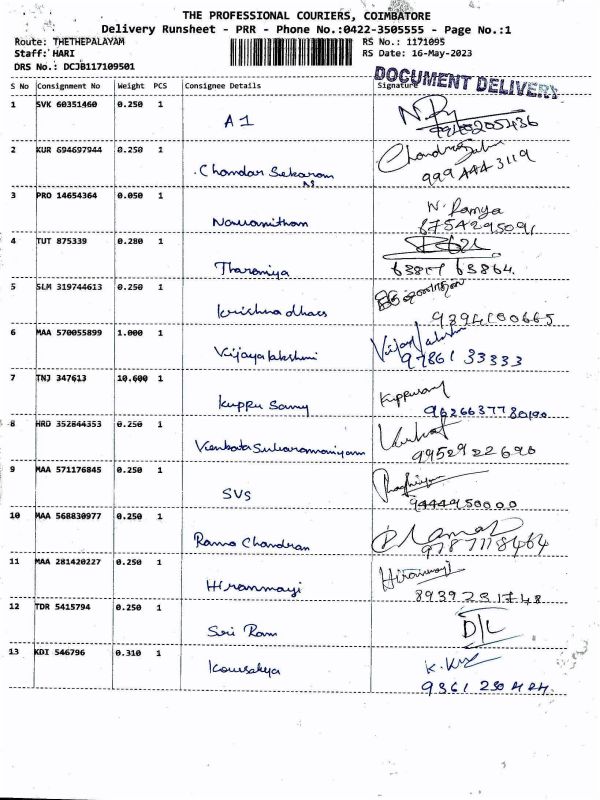 THE PROFESSIONAL COURIERS, COIMBATORE
Delivery Runsheet - PRR - Phone No.:0422-3505555 - Page No.:1
Route: THETHEPALAYAM RS No.: 1171095
Staff: HARI RS Date: 16-May-2023
DRS No.: DCJB117109501
DOCUMENT DELIVERY
S No Consignment No Weight PCS Consignee Details Signature
1 SVK 60351460 0.250 1
A1
2 KUR 694697944 0.250 1
Chandar Sekaram
999 444 3119
3 PRO 14654364 0.050 1 N. Ramya
Navanitham 8754295091
4 TUT 875339 0.280 1
Tharaniya 63817 63864.
5 SLM 319744613 0.250 1
Krishna dhars 9394100665
6 MAA 570055899 1.000 1 Vijayalakshmi
Vijayalakshmi 97861 33333
7 TNJ 347613 10.600 1 Kuppusamy
Kuppu Samy
8 HRD 352844353 0.250 1 Venkat
Venbata Subaramaniyam 9952922690
9 MAA 571176845 0.250 1
SVS 9444950000
10 MAA 568830977 0.250 1
Rama Chandran 9787718464
11 MAA 281420227 0.250 1 Hiranmayi
Hiranmayi 8939231748
12 TDR 5415794 0.250 1 D/L
Sri Ram
13 KDI 546796 0.310 1
Kousalya 9361 230 424.